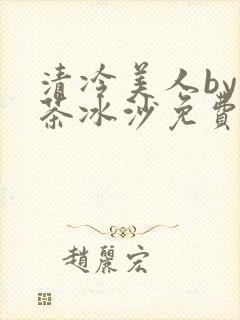 清冷美人by
茶冰沙免費
趙麗宏